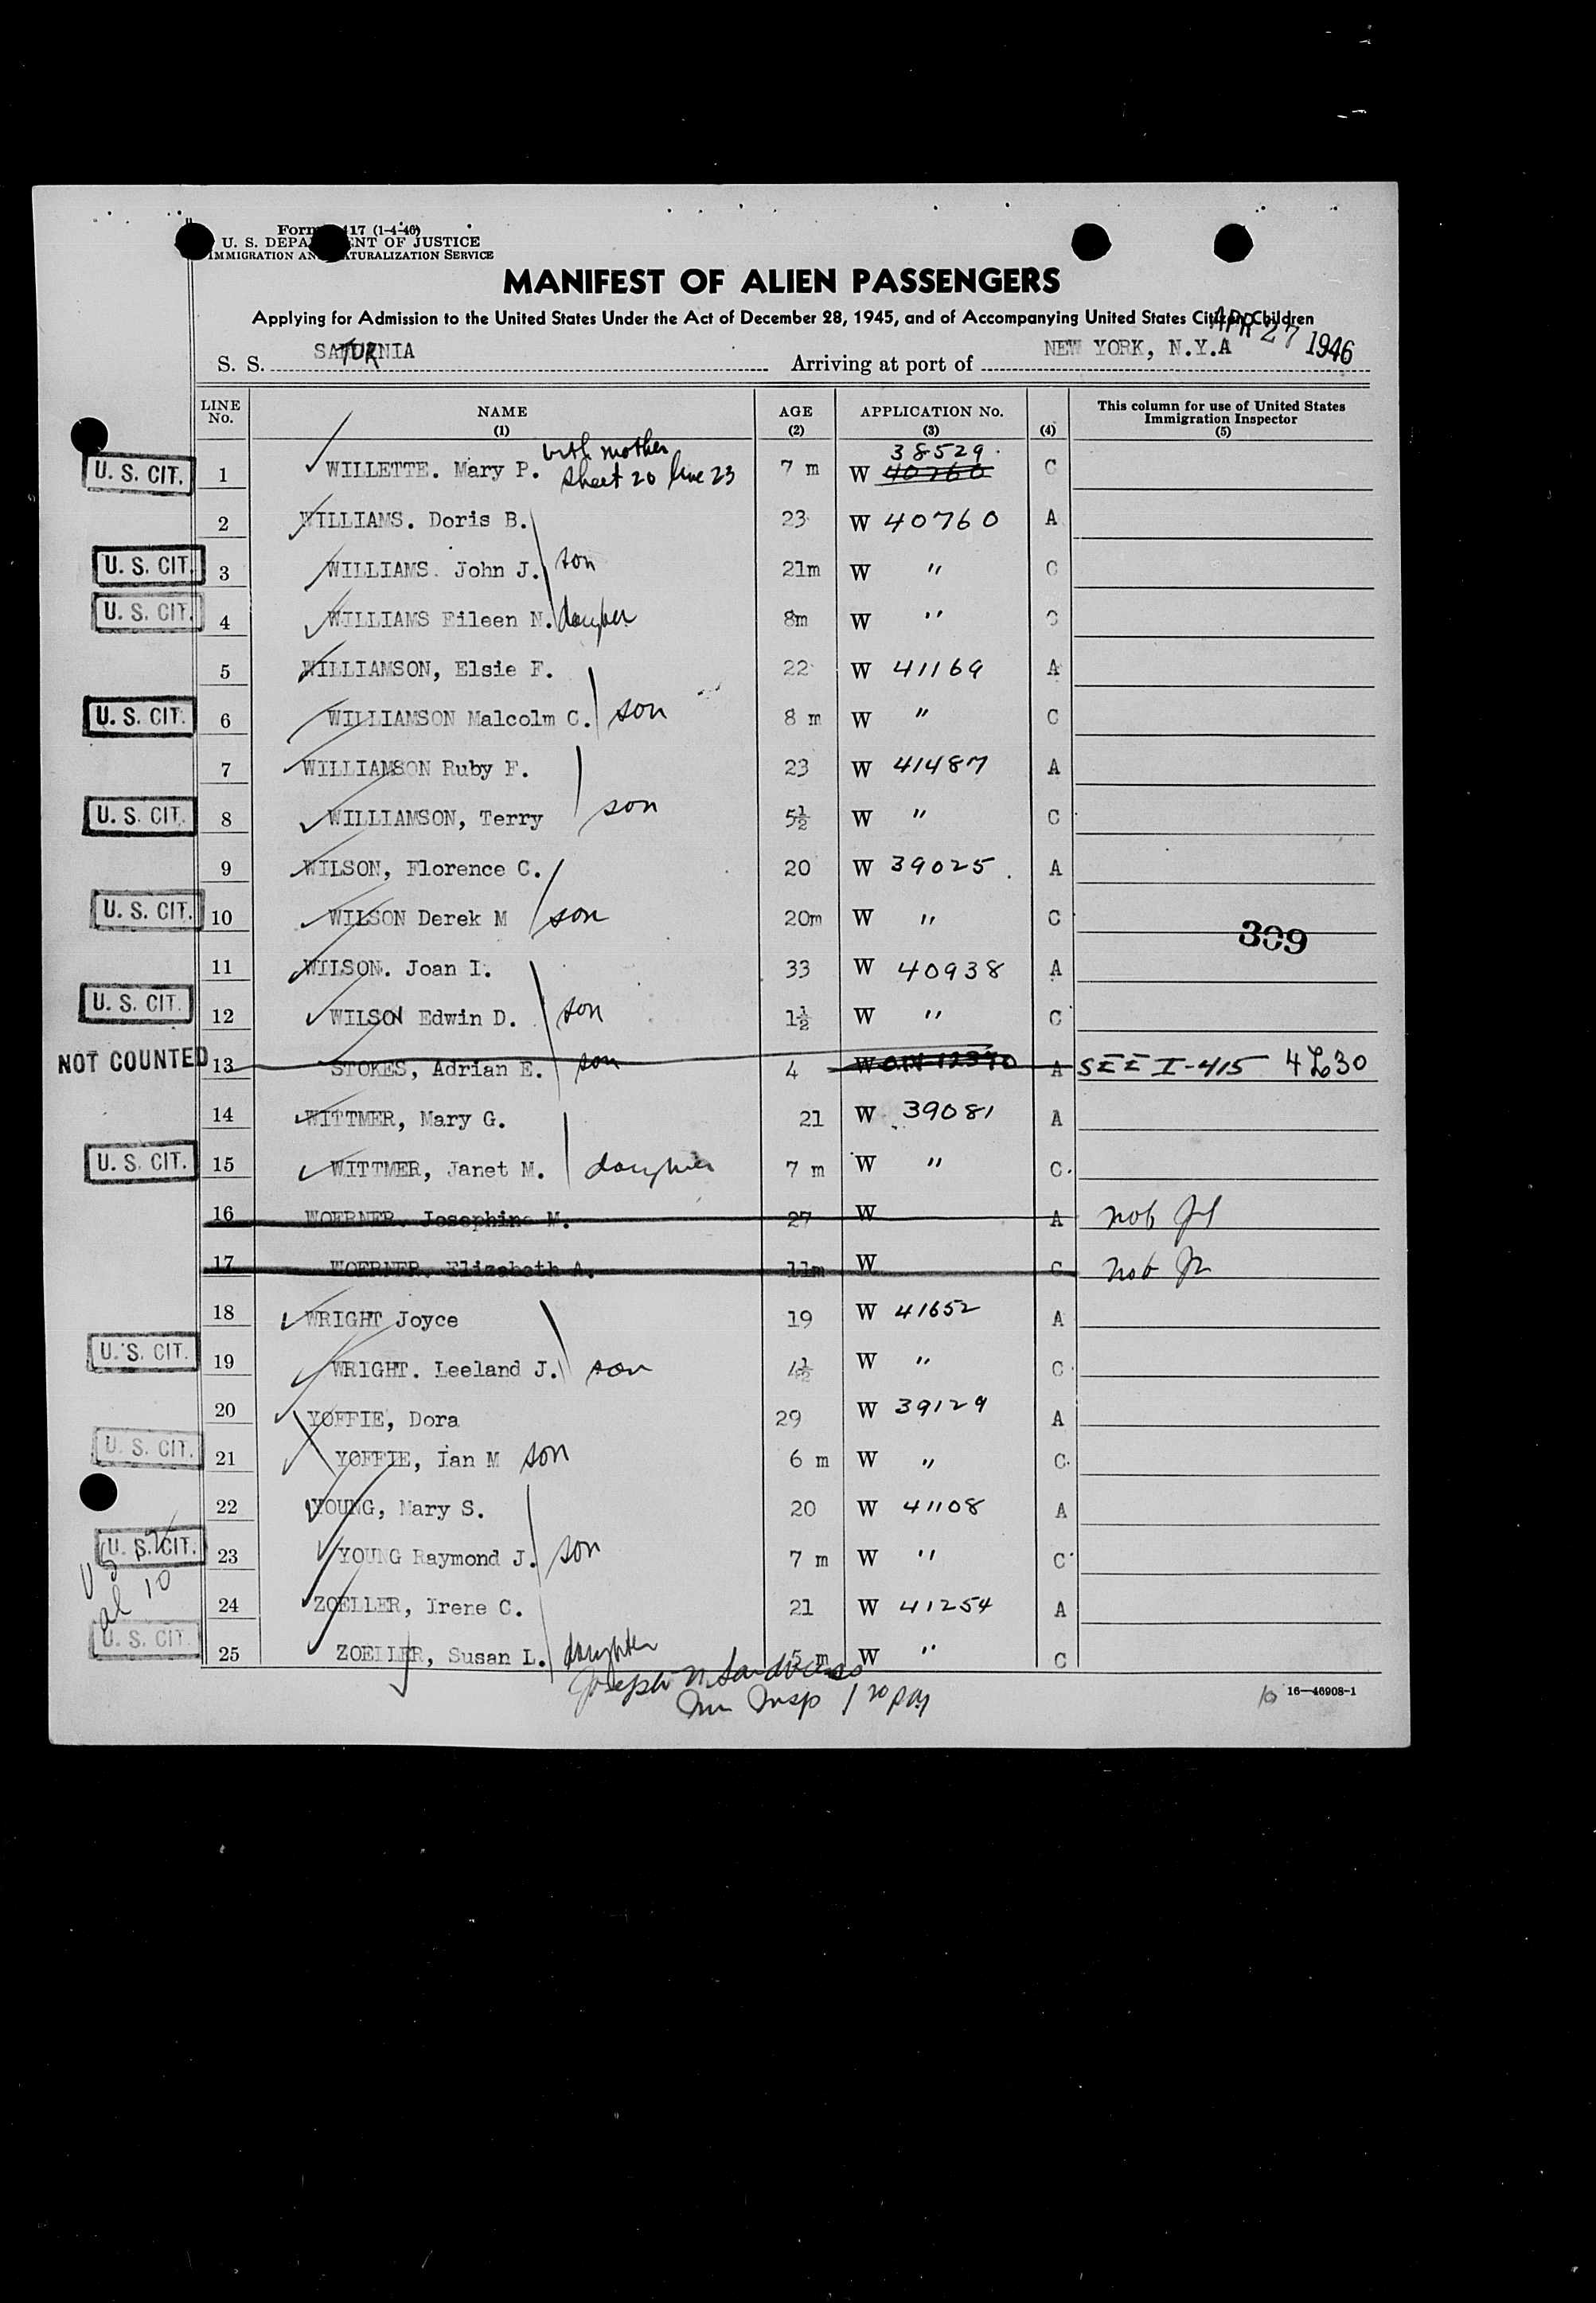 Form 417 (1-4-46)
U. S. DEPA ENT OF JUSTICE
IMMIGRATION AN ATURALIZATION SERVICE
MANIFEST OF ALIEN PASSENGERS
Applying for Admission to the United States Under the Act of December 28, 1945, and of Accompanying United States Citizen Children
S. S. SATURNIA Arriving at port of NEW YORK, N.Y. APR 27 1946
LINE No. NAME (1) AGE (2) APPLICATION No. (3) (4) This column for use of United States Immigration Inspector (5)
U. S. CIT. 1 WILLETTE. Mary P. with mother sheet 20 line 23 7 m W 38529 40760 C
2 WILLIAMS. Doris B. 23 W 40760 A
U. S. CIT. 3 WILLIAMS. John J. son 21m W " C
U. S. CIT. 4 WILLIAMS Eileen N. daughter 8m W " C
5 WILLIAMSON, Elsie F. 22 W 41169 A
U. S. CIT. 6 WILLIAMSON Malcolm C. son 8 m W " C
7 WILLIAMSON Ruby F. 23 W 41487 A
U. S. CIT. 8 WILLIAMSON, Terry son 5½ W " C
9 WILSON, Florence C. 20 W 39025 A
U. S. CIT. 10 WILSON Derek M son 20m W " C
309
11 WILSON. Joan I. 33 W 40938 A
U. S. CIT. 12 WILSON Edwin D. son 1½ W " C
NOT COUNTED 13 STOKES, Adrian E. son 4 W 12370 A SEE I-415 30
14 WITTMER, Mary G. 21 W 39081 A
U. S. CIT. 15 WITTMER, Janet M. daughter 7 m W " C
16 WOERNER. Josephine M. 27 W A not
17 WOERNER. Elizabeth A. 11m W C not
18 WRIGHT Joyce 19 W 41652 A
U. S. CIT. 19 WRIGHT. Leeland J. son 4½ W " C
20 YOFFIE, Dora 29 W 39129 A
U. S. CIT. 21 YOFFIE, Ian M son 6 m W " C
22 YOUNG, Mary S. 20 W 41108 A
U. S. CIT. 23 YOUNG Raymond J. son 7 m W " C
24 ZOELLER, Irene C. 21 W 41254 A
al 10
U. S. CIT. 25 ZOELLER, Susan L. daughter 5 m W " C
Joseph
Imm Insp
16—46908-1